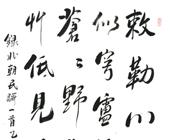 敕勒川
似穹廬
蒼〻野
艸低見
錄北朝民謠一首乙